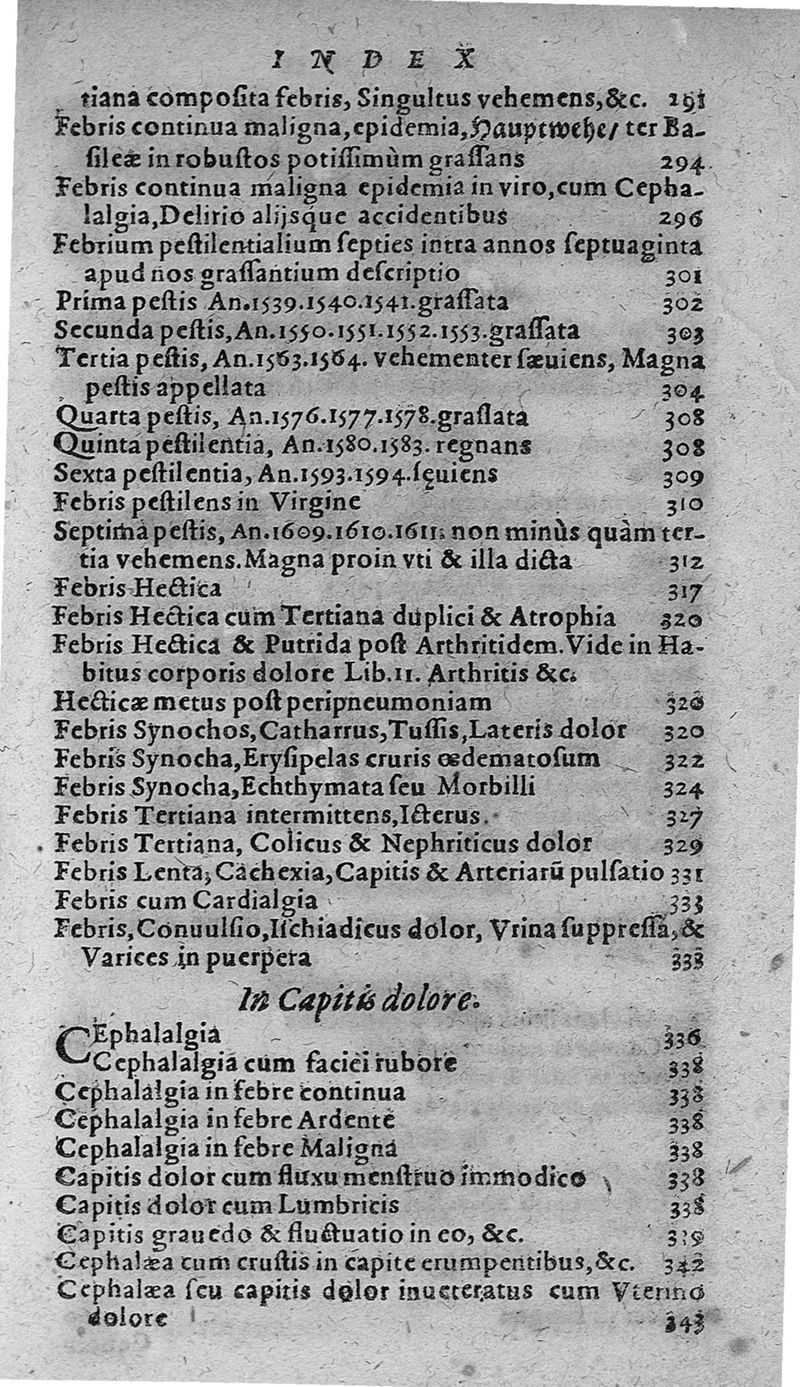 INDEX
tiana compoſita febris, Singultus vehemens,&c. 291
Febris continua maligna,epidemia,Hauptwehe/ ter Ba-
ſileæ in robuſtos potiſſimùm graſſans 294
Febris continua maligna epidemia in viro,cum Cepha-
lalgia,Delirio alijsque accidentibus 296
Febrium peſtilentialium ſepties intra annos ſeptuaginta
apud nos graſſantium deſcriptio 301
Prima peſtis An.1539.1540.1541.graſſata 302
Secunda peſtis,An.1550.1551.1552.1553.graſſata 303
Tertia peſtis, An.1563.1564. vehementer ſæuiens, Magna
peſtis appellata 304
Quarta peſtis, An.1576.1577.1578.graſſata 308
Quinta peſtilentia, An.1580.1583. regnans 308
Sexta peſtilentia, An.1593.1594.ſęuiens 309
Febris peſtilens in Virgine 310
Septima peſtis, An.1609.1610.1611. non minùs quàm ter-
tia vehemens.Magna proin vti & illa dicta 312
Febris Hectica 317
Febris Hectica cum Tertiana duplici & Atrophia 320
Febris Hectica & Putrida poſt Arthritidem.Vide in Ha-
bitus corporis dolore Lib.11. Arthritis &c.
Hecticæ metus poſt peripneumoniam 320
Febris Synochos,Catharrus,Tuſſis,Lateris dolor 320
Febris Synocha,Eryſipelas cruris œdematoſum 322
Febris Synocha,Echthymata ſeu Morbilli 324
Febris Tertiana intermittens,Icterus. 327
Febris Tertiana, Colicus & Nephriticus dolor 329
Febris Lenta,Cachexia,Capitis & Arteriarū pulſatio 331
Febris cum Cardialgia 333
Febris,Conuulſio,Iſchiadicus dolor, Vrina ſuppreſſa,&
Varices in puerpera 333
In Capitis dolore.
CEphalalgia 336
Cephalalgia cum faciei rubore 338
Cephalalgia in febre continua 338
Cephalalgia in febre Ardente 338
Cephalalgia in febre Maligna 338
Capitis dolor cum fluxu menſtruo immodico 338
Capitis dolor cum Lumbricis 338
Capitis grauedo & fluctuatio in eo, &c. 339
Cephalæa cum cruſtis in capite erumpentibus,&c. 342
Cephalæa ſeu capitis dolor inueteratus cum Vterino
dolore 343